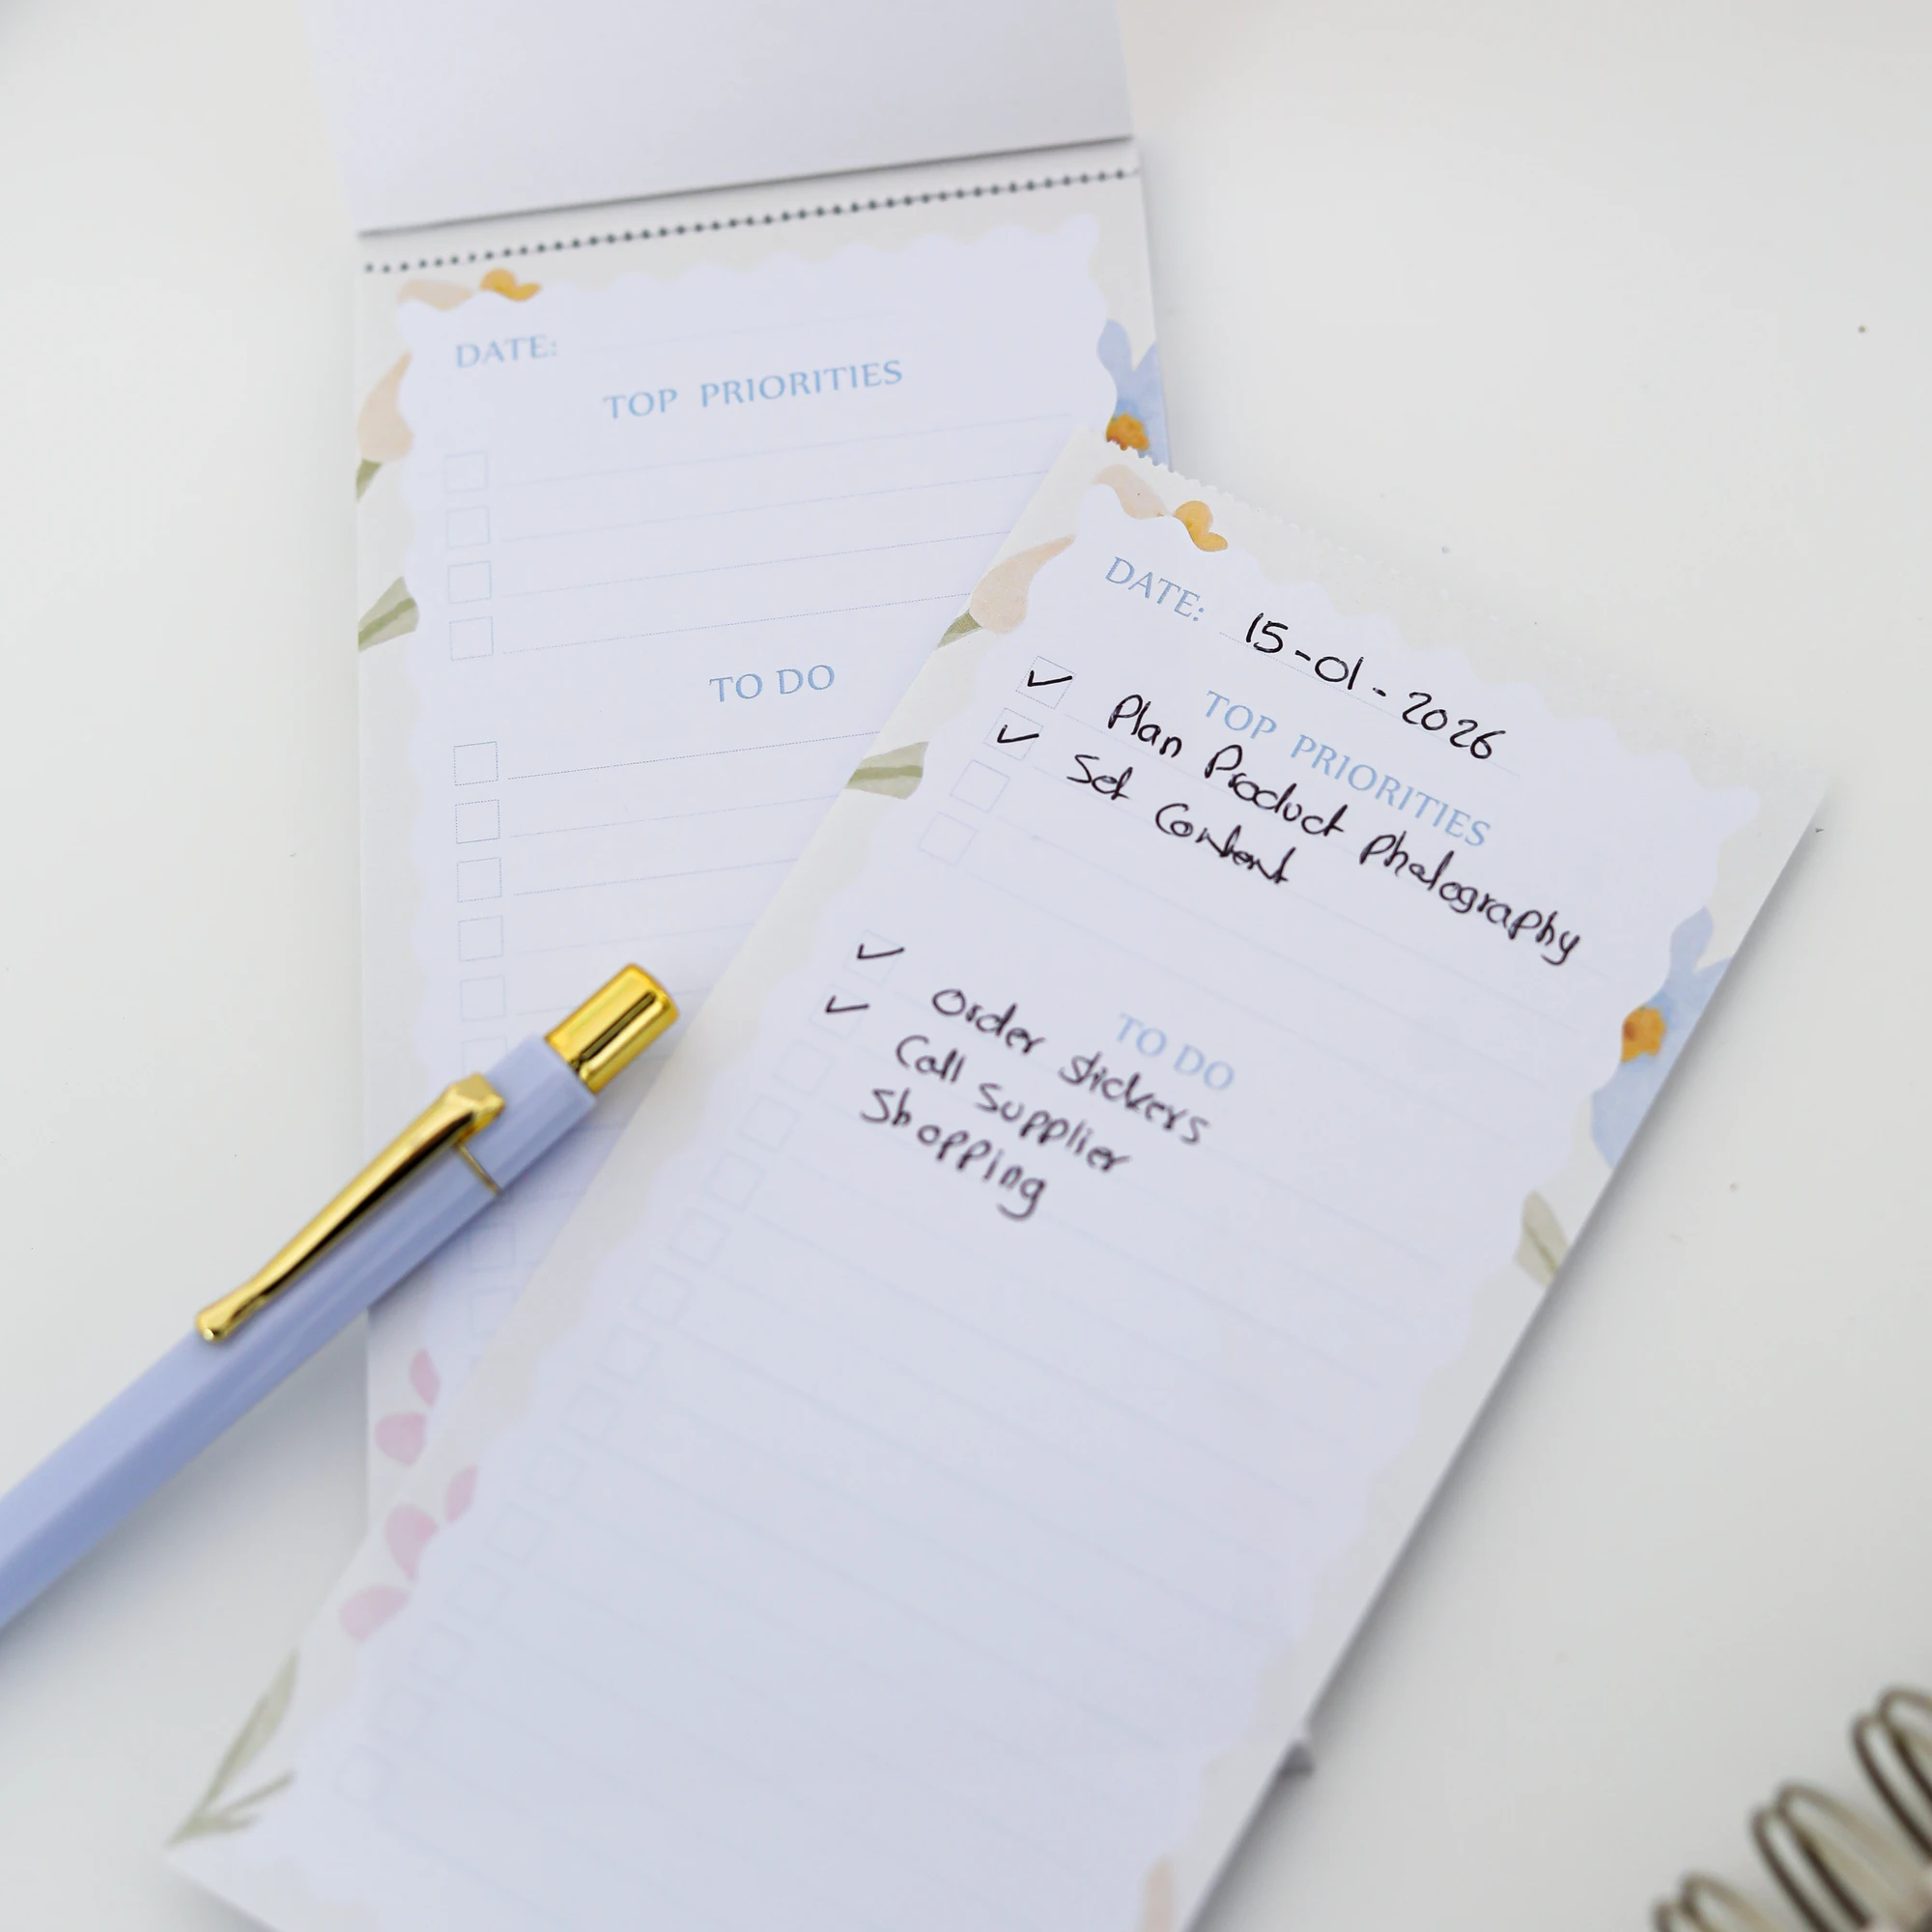 DATE:
TOP PRIORITIES
TO DO
DATE: 15-01-2026
TOP PRIORITIES
Plan Product Photography
Set Content
TO DO
Order stickers
Call supplier
Shopping